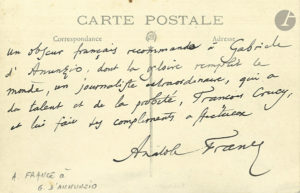 CARTE POSTALE
Correspondance
Adresse
un obscur français recommande à Gabriele
d'Annunzio, dont la gloire remplit le
monde, un journaliste extraordinaire, qui a
du talent et de la probité, François Crucy,
et lui fait des compliments à
Anatole France
A. FRANCE à
G. D'ANNUNZIO